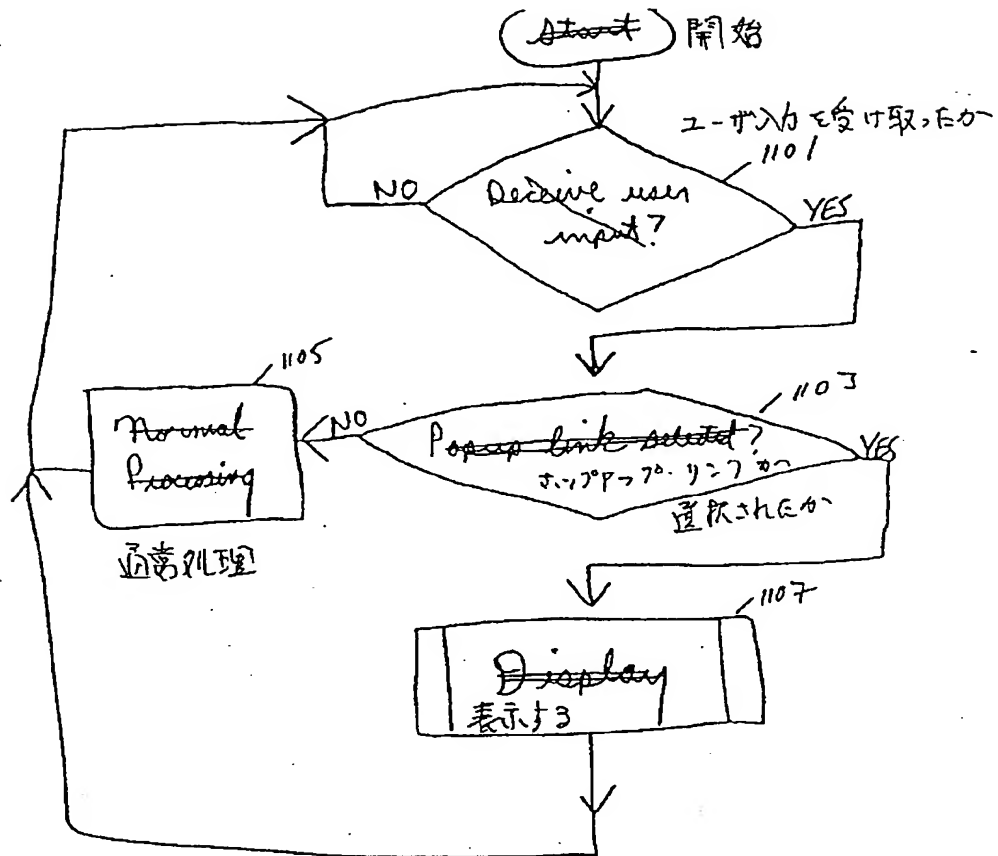 Start 開始
ユーザ入力を受け取ったか
1101
NO
Receive user
input?
YES
1105
1103
Normal
Processing
NO
Popup link selected?
YES
ポップアップ・リンクが
選択されたか
通常処理
1107
Display
表示する